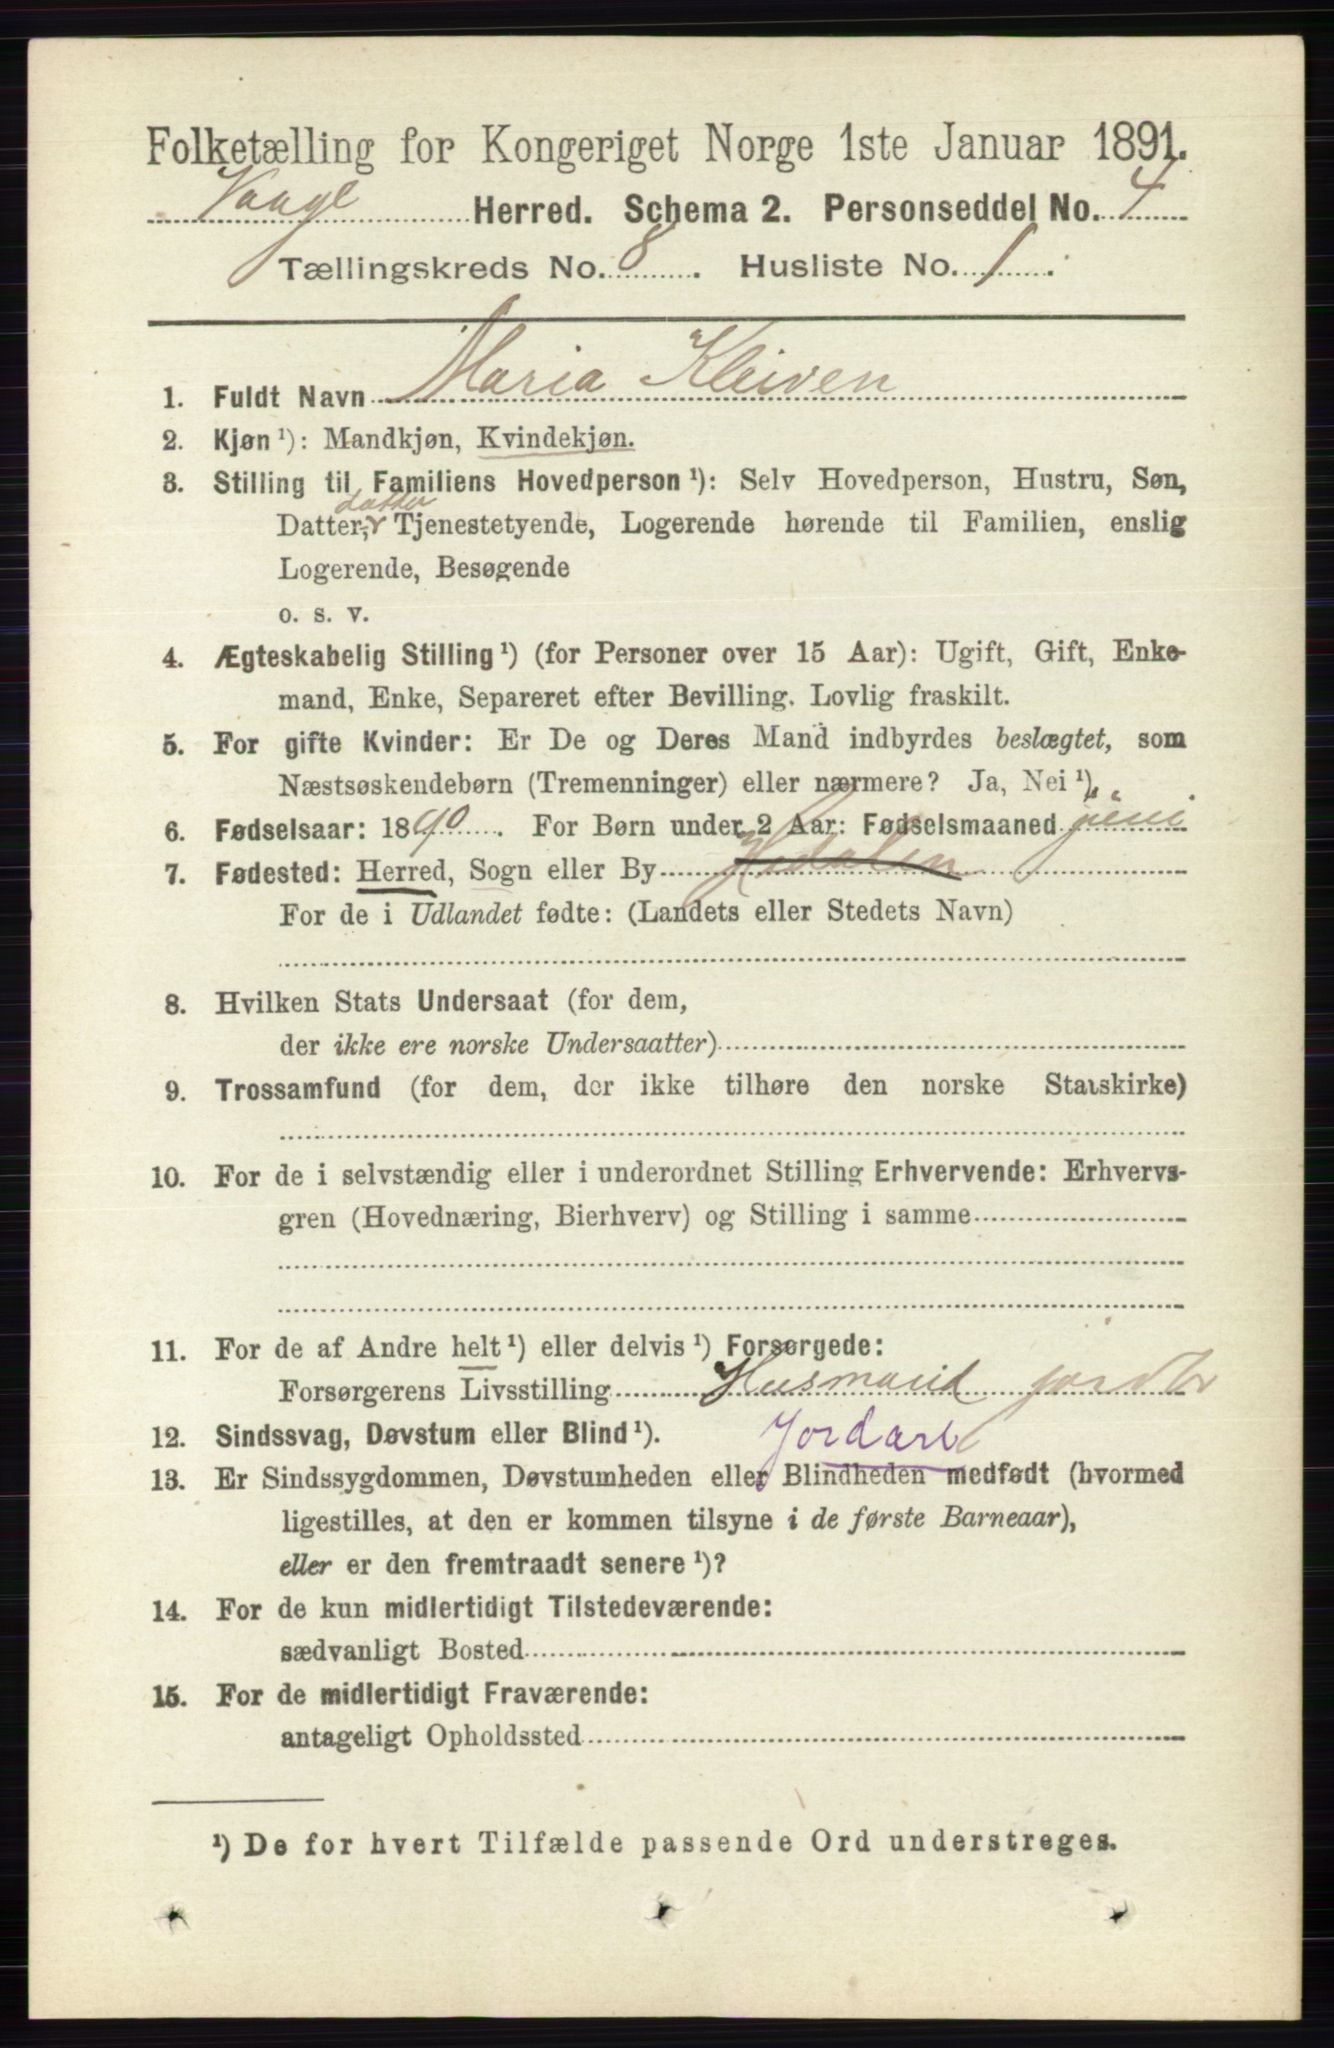 Folketælling for Kongeriget Norge 1ste Januar 1891.
Vaage Herred. Schema 2. Personseddel No. 4
Tællingskreds No. 8. Husliste No. 1.
1. Fuldt Navn Maria Kleiven
2. Kjøn ¹): Mandkjøn, Kvindekjøn.
3. Stilling til Familiens Hovedperson ¹): Selv Hovedperson, Hustru, Søn,
datter
Datter, Tjenestetyende, Logerende hørende til Familien, enslig
Logerende, Besøgende
o. s. v.
4. Ægteskabelig Stilling ¹) (for Personer over 15 Aar): Ugift, Gift, Enke-
mand, Enke, Separeret efter Bevilling. Lovlig fraskilt.
5. For gifte Kvinder: Er De og Deres Mand indbyrdes beslægtet, som
Næstsøskendebørn (Tremenninger) eller nærmere? Ja, Nei ¹).
6. Fødselsaar: 1890. For Børn under 2 Aar: Fødselsmaaned juni
7. Fødested: Herred, Sogn eller By Hedalen
For de i Udlandet fødte: (Landets eller Stedets Navn)
8. Hvilken Stats Undersaat (for dem,
der ikke ere norske Undersaatter)
9. Trossamfund (for dem, der ikke tilhøre den norske Statskirke)
10. For de i selvstændig eller i underordnet Stilling Erhvervende: Erhvervs-
gren (Hovednæring, Bierhverv) og Stilling i samme
11. For de af Andre helt ¹) eller delvis ¹) Forsørgede:
Forsørgerens Livsstilling Husmand
12. Sindssvag, Døvstum eller Blind ¹). Jordarb
13. Er Sindssygdommen, Døvstumheden eller Blindheden medfødt (hvormed
ligestilles, at den er kommen tilsyne i de første Barneaar),
eller er den fremtraadt senere ¹)?
14. For de kun midlertidigt Tilstedeværende:
sædvanligt Bosted
15. For de midlertidigt Fraværende:
antageligt Opholdssted
¹) De for hvert Tilfælde passende Ord understreges.